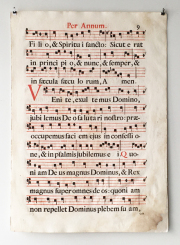 Per Annum. 9
Filio, & Spiritui sancto: Sicut erat
in principio, & nunc, & semper, &
in sæcula sæculorum, Amen.
Venite, exultemus Domino,
jubilemus Deo salutari nostro: præ-
occupemus faciem ejus in confessio-
ne, & in psalmis jubilemus ei. Quo-
niam Deus magnus Dominus, & Rex
magnus super omnes deos: quoniam
non repellet Dominus plebem suam,